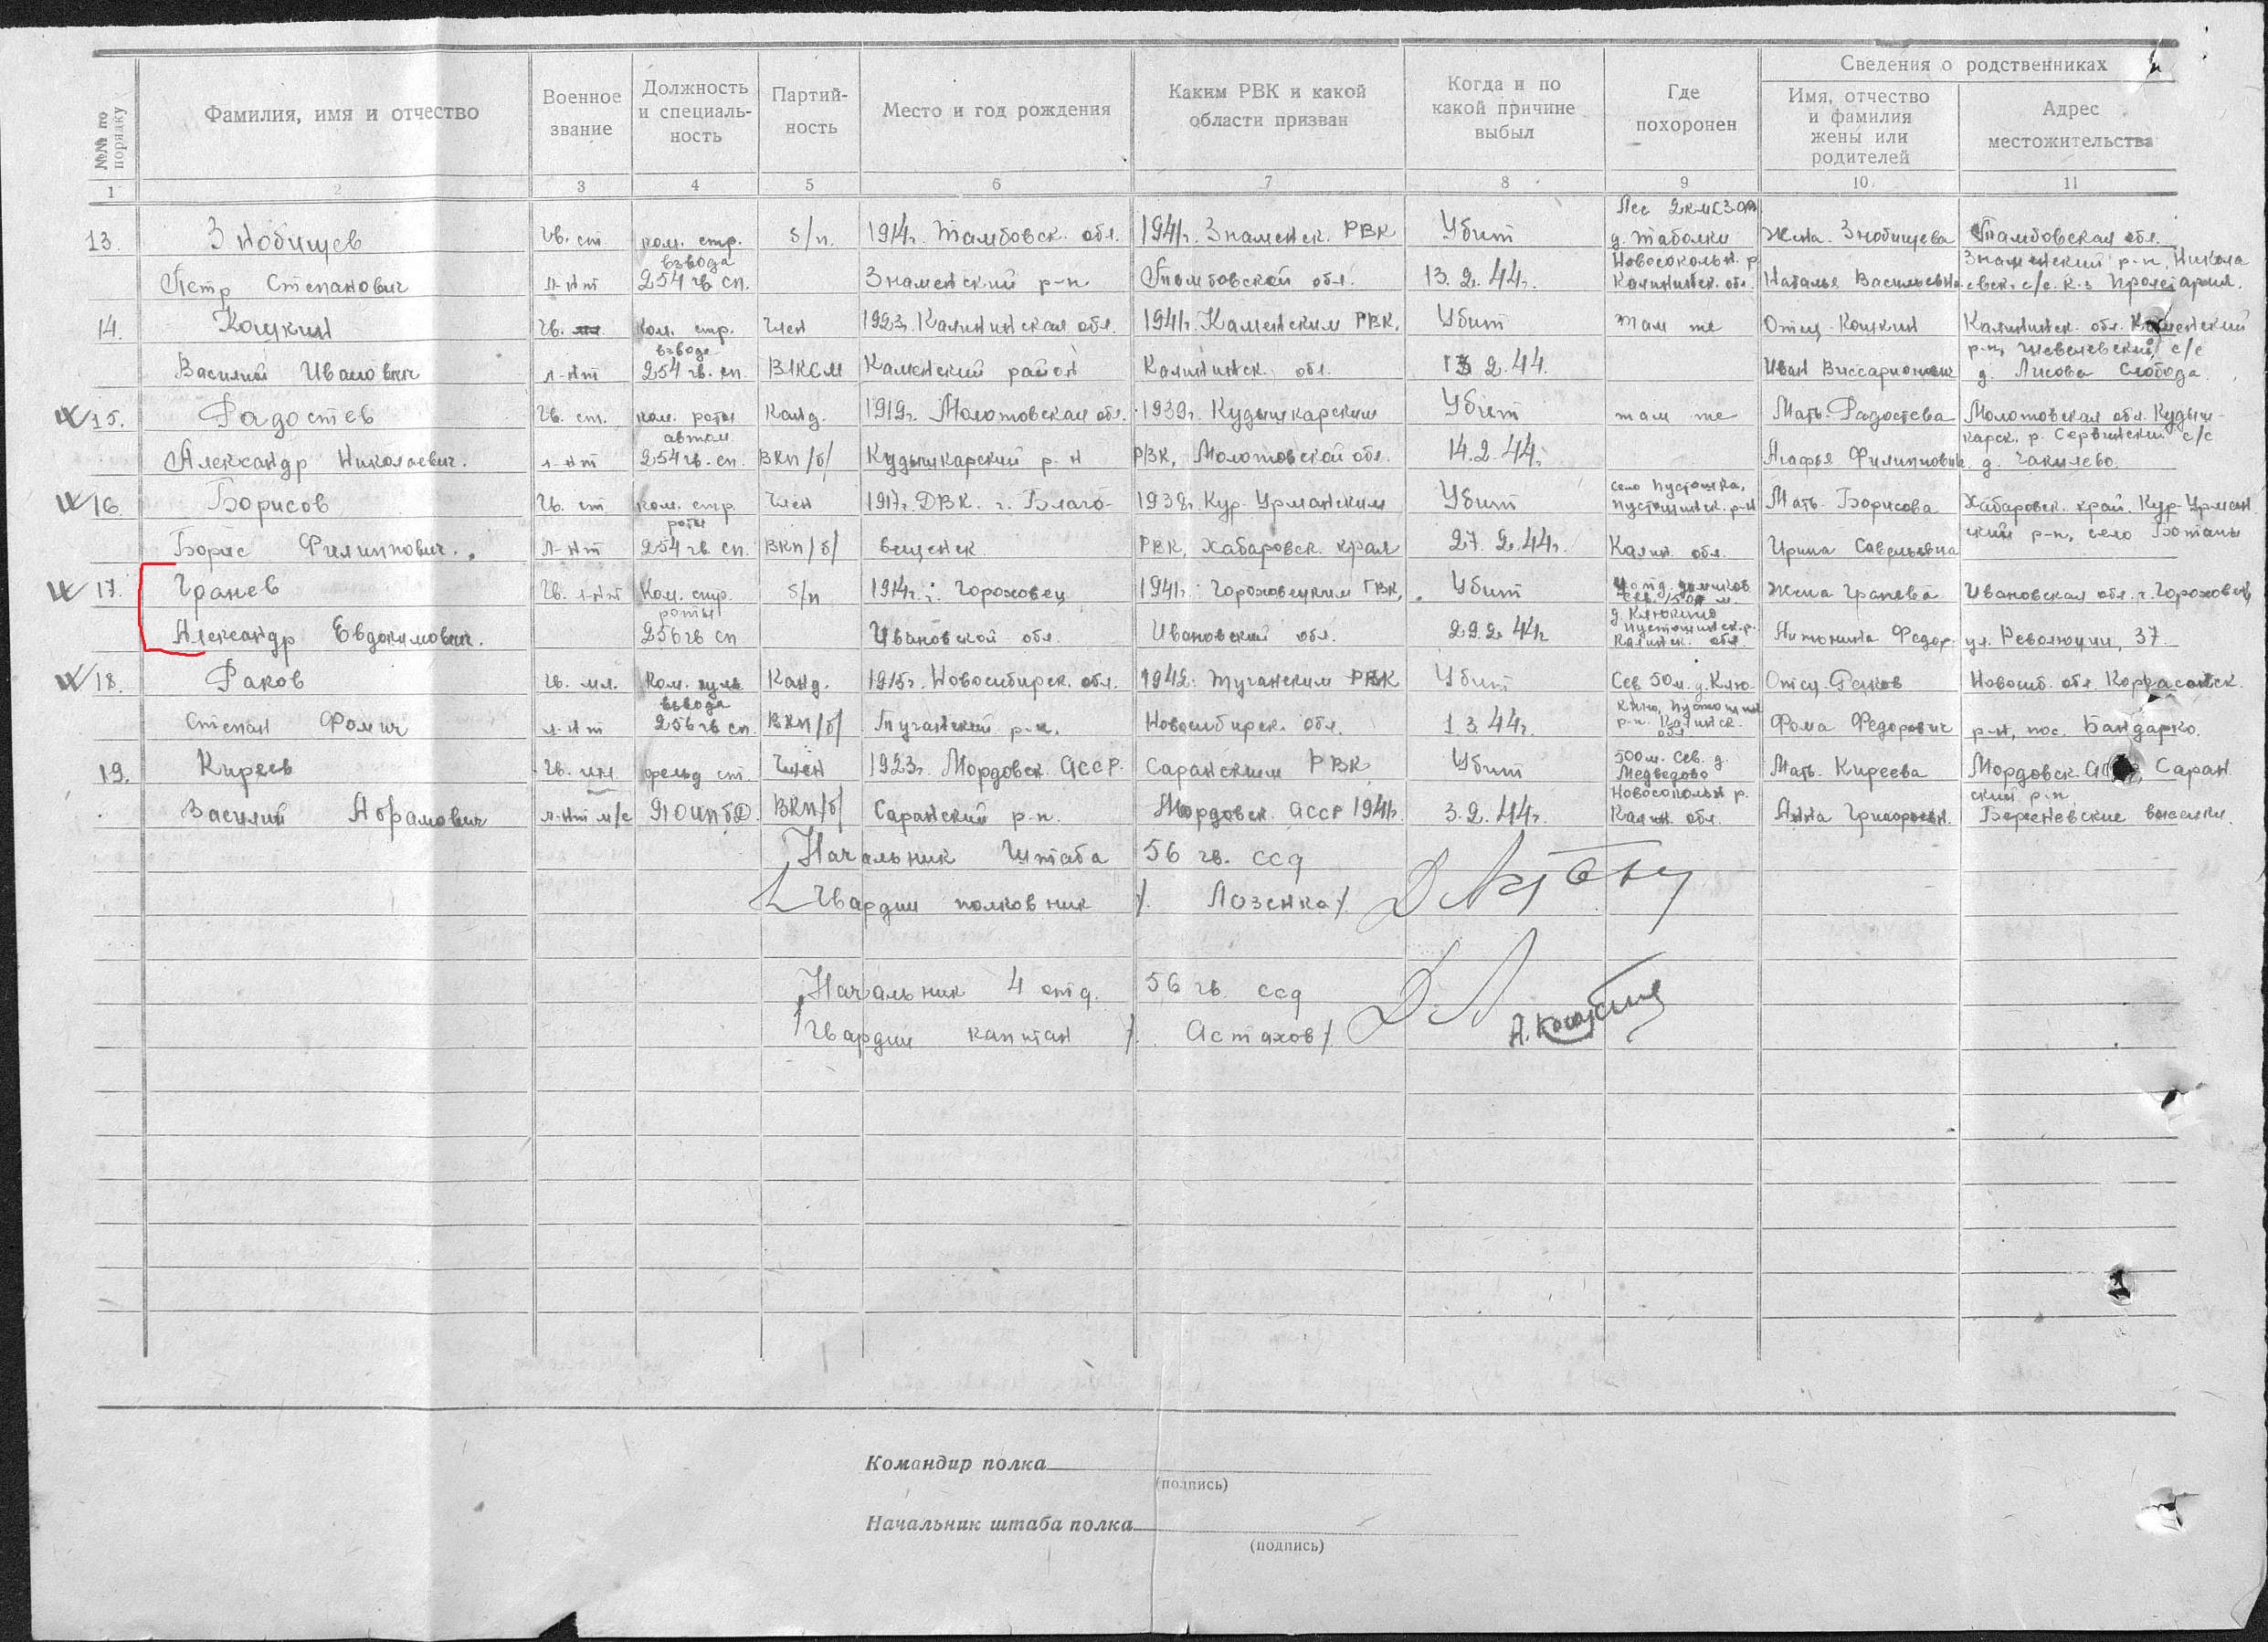 №№ по порядку
Фамилия, имя и отчество
Военное звание
Должность и специаль-ность
Партий-ность
Место и год рождения
Каким РВК и какой области призван
Когда и по какой причине выбыл
Где похоронен
Сведения о родственниках
Имя, отчество и фамилия жены или родителей
Адрес местожительства
1 2 3 4 5 6 7 8 9 10 11
Лес 2 км СЗ
13. Знобищев Гв. ст ком. стр. б/п. 1914г. Тамбовск. обл. 1941г. Знаменск. РВК Убит д. Таболки Жена. Знобищева Тамбовская обл.
взвода Новосокольн. р Знаменский р-н, Никола
Петр Степанович л-нт 254 гв сп. Знаменский р-н Тамбовской обл. 13.2.44г. Калининск. обл. Наталья Васильевн. евск. с/с. к-з Пролетария.
14. Коцкин Гв. ком. стр. Член 1923г. Калининская обл. 1941г. Каменским РВК, Убит там же Отец. Коцкин Калининск. обл. Каменский
взвода р-н, с/с
Василий Иванович л-нт 254 гв. сп. ВЛКСМ Каменский район Калининск. обл. 13 2.44. Иван Виссарионович д. Лисова Слобода.
15. Радостев Гв. ст. ком. роты Канд. 1919г. Молотовская обл. 1939г. Кудымкарским Убит там же Мать. Радостева Молотовская обл. Кудым-
автом карск. р. с/с
Александр Николаевич. л-нт 254 гв. сп. ВКП/б/ Кудымкарский р-н РВК, Молотовской обл. 14.2.44г. Агафья Филипповн. д.
16. Борисов Гв. ст ком. стр. Член 1917г. ДВК. г. Благо- 1938г. Кур-Урманским Убит село Пустошка, Пустошинск. р-н Мать. Борисова Хабаровск. край. Кур-Урман
роты ский р-н, село
Борис Филиппович. л-нт 254 гв сп. ВКП/б/ вещенск РВК, Хабаровск. края 27.2.44г. Калин. обл. Ирина Савельевна
17. Гранев Гв. л-нт Ком. стр. б/п 1914г. г. Гороховец 1941г. Гороховецким РВК, Убит Сев. м. Жена Гранева Ивановская обл. г. Гороховец
роты д. Клюкино
Александр Евдокимович. 256 гв сп Ивановской обл. Ивановский обл. 29.2.44г Пустошинск. р. Калинск. обл. Антонина Федор. ул. Революции, 37.
18. Раков Гв. мл. Ком. пуль Канд. 1915г. Новосибирск. обл. 1942. Туганским РВК Убит Сев 50 м. д. Клю- Отец. Раков Новосиб. обл.
взвода кино, Пустошин
Степан Фомич л-нт 256 гв сп. ВКП/б/ Туганский р-н. Новосибирск. обл. 1.3.44г. р-н. Калинск. обл. Фома Федорович р-н, пос. Бандарко.
19. Киреев Гв. мл. фельд. ст. Член 1923г. Мордовск. АССР. Саранским РВК Убит 500 м. Сев. д. Медведово Мать. Киреева Мордовск. Саран
Новосокольн р. ский р-н
Василий Абрамович л-нт м/с ВКП/б/ Саранский р-н. Мордовск. АССР 1941г. 3.2.44г. Калин. обл. Анна Григорьевн. выселки.
Начальник Штаба 56 гв. ссд
Гвардии полковник / Лозенко /
Начальник 4 отд. 56 гв. ссд
Гвардии капитан / Астахов /
Командир полка
(подпись)
Начальник штаба полка
(подпись)